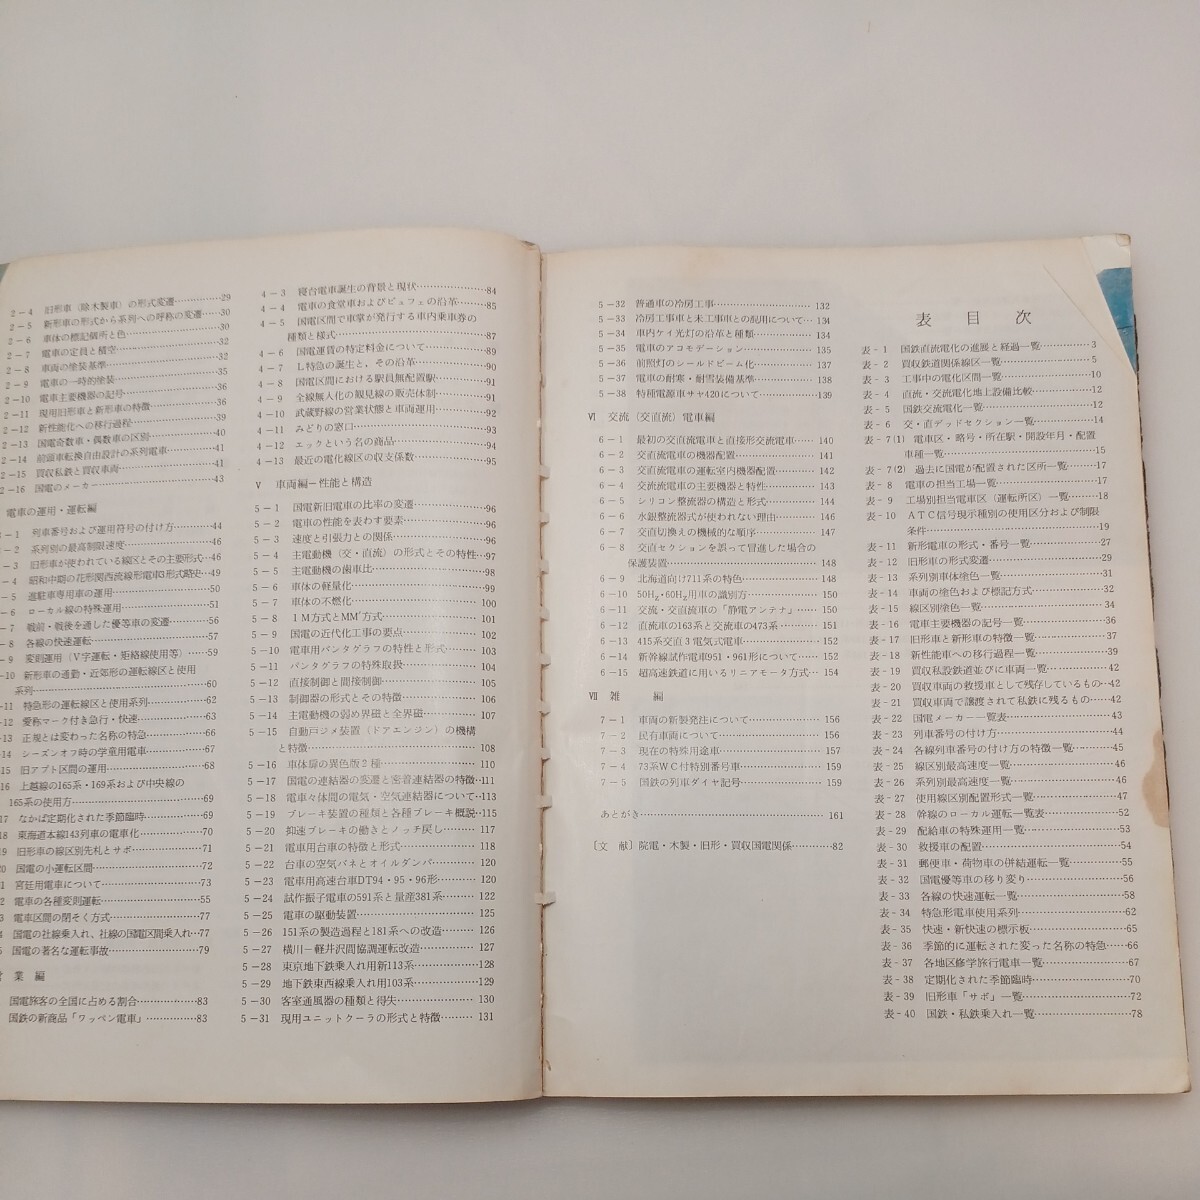 2-4 旧形車（除木製車）の形式変遷……………29
2-5 新形車の形式から系列への呼称の変遷……30
2-6 車体の標記個所と色……………30
2-7 電車の定員と積空……………32
2-8 車両の塗装基準……………32
2-9 電車の一時的塗装……………35
2-10 電車主要機器の記号……………36
2-11 現用旧形車と新形車の特徴……………36
2-12 新性能化への移行過程……………39
2-13 国電奇数車・偶数車の区別……………40
2-14 前頭車転換自由設計の系列電車……………41
2-15 買収私鉄と買収車両……………41
2-16 国電のメーカー……………43
電車の運用・運転編
-1 列車番号および運用符号の付け方……………44
-2 系列別の最高制限速度……………46
-3 旧形車が使われている線区とその主要形式…46
-4 昭和中期の花形関西流線形電車3形式略史…49
-5 進駐車専用車の運用……………50
-6 ローカル線の特殊運用……………51
-7 戦前・戦後を通した優等車の変遷……………56
-8 各線の快速運転……………57
-9 変則運用（V字運転・短絡線使用等）……59
-10 新形車の通勤・近郊形の運転線区と使用
系列……………60
-11 特急形の運転線区と使用系列……………62
-12 愛称マーク付き急行・快速……………63
-13 正規とは変わった名称の特急……………66
-14 シーズンオフ時の学童用電車……………67
15 旧アプト区間の運用……………68
16 上越線の165系・169系および中央線の
165系の使用方……………69
17 なかば定期化された季節臨時……………69
18 東海道本線143列車の電車化……………70
19 旧形車の線区別先札とサボ……………71
20 国電の小運転区間……………72
1 宮廷用電車について……………73
2 電車の各種変則運転……………55
3 電車区間の閉そく方式……………77
4 国電の社線乗入れ、社線の国電区間乗入れ…77
5 国電の著名な運転事故……………79
営業編
国電旅客の全国に占める割合……………83
国鉄の新商品「ワッペン電車」……………83
4-3 寝台電車誕生の背景と現状……………84
4-4 電車の食堂車およびビュフェの沿革……………85
4-5 国電区間で車掌が発行する車内乗車券の
種類と様式……………87
4-6 国電運賃の特定料金について……………89
4-7 L特急の誕生と、その沿革……………90
4-8 国電区間における駅員無配置駅……………91
4-9 全線無人化の観見線の販売体制……………91
4-10 武蔵野線の営業状態と車両運用……………92
4-11 みどりの窓口……………93
4-12 エックという名の商品……………94
4-13 最近の電化線区の収支係数……………95
V 車両編－性能と構造
5-1 国電新旧電車の比率の変遷……………96
5-2 電車の性能を表わす要素……………96
5-3 速度と引張力との関係……………96
5-4 主電動機（交・直流）の形式とその特性……97
5-5 主電動機の歯車比……………98
5-6 車体の軽量化……………99
5-7 車体の不燃化……………100
5-8 1M方式とMM′方式……………101
5-9 国電の近代化工事の要点……………102
5-10 電車用パンタグラフの特性と形式……………103
5-11 パンタグラフの特殊取扱……………104
5-12 直接制御と間接制御……………105
5-13 制御器の形式とその特徴……………106
5-14 主電動機の弱め界磁と全界磁……………107
5-15 自動戸ジメ装置（ドアエンジン）の機構
と特徴……………108
5-16 車体扉の異色版2種……………110
5-17 国電の連結器の変遷と密着連結器の特徴…111
5-18 電車々体間の電気・空気連結器について…113
5-19 ブレーキ装置の種類と各種ブレーキ概説…115
5-20 抑速ブレーキの働きとノッチ戻し……………117
5-21 電車用台車の特徴と形式……………118
5-22 台車の空気バネとオイルダンパ……………120
5-23 電車用高速台車DT94・95・96形……………120
5-24 試作振子電車の591系と量産381系……………122
5-25 電車の駆動装置……………125
5-26 151系の製造過程と181系への改造……………126
5-27 横川－軽井沢間協調運転改造……………127
5-28 東京地下鉄乗入れ用新113系……………128
5-29 地下鉄東西線乗入れ用103系……………129
5-30 客室通風器の種類と得失……………130
5-31 現用ユニットクーラの形式と特徴………131
5-32 普通車の冷房工事……………132
5-33 冷房工事車と未工事車との混用について…134
5-34 車内ケイ光灯の沿革と種類……………134
5-35 電車のアコモデーション……………135
5-36 前照灯のシールドビーム化……………137
5-37 電車の耐寒・耐雪装備基準……………138
5-38 特種電源車サヤ420について……………139
VI 交流（交直流）電車編
6-1 最初の交直流電車と直接形交流電車……140
6-2 交直流電車の機器配置……………141
6-3 交直流電車の運転室内機器配置……………142
6-4 交流交直流電車の主要機器と特性……………143
6-5 シリコン整流器の構造と形式……………144
6-6 水銀整流器式が使われない理由……………146
6-7 交直切換えの機械的な順序……………147
6-8 交直セクションを誤って冒進した場合の
保護装置……………148
6-9 北海道向け711系の特色……………148
6-10 50Hz・60Hz用車の識別方……………150
6-11 交流・交直流車の「静電アンテナ」……150
6-12 直流車の163系と交流車の473系……………151
6-13 415系交直3電気式電車……………152
6-14 新幹線試作電車951・961形について……152
6-15 超高速鉄道に用いるリニアモータ方式……154
VII 雑編
7-1 車両の新製発注について……………156
7-2 民有車両について……………156
7-3 現在の特殊用途車……………157
7-4 73系WC付特別番号車……………159
7-5 国鉄の列車ダイヤ記号……………159
あとがき……………161
〔文献〕院電・木製・旧形・買収国電関係………82
表目次
表-1 国鉄直流電化の進展と経過一覧……………3
表-2 買収鉄道関係線区一覧……………5
表-3 工事中の電化区間一覧……………10
表-4 直流・交流電化地上設備比較……………12
表-5 国鉄交流電化一覧……………12
表-6 交・直デッドセクション一覧……………14
表-7(1) 電車区・略号・所在駅・開設年月・配置
車種一覧……………15
表-7(2) 過去に国電が配置された区所一覧……17
表-8 電車の担当工場一覧……………17
表-9 工場別担当電車区（運転所区）一覧……18
表-10 ATC信号現示種別の使用区分および制限
条件……………19
表-11 新形電車の形式・番号一覧……………27
表-12 旧形車の形式変遷……………29
表-13 系列別車体塗色一覧……………31
表-14 車両の塗色および標記方式……………32
表-15 線区別塗色一覧……………34
表-16 電車主要機器の記号一覧……………36
表-17 旧形車と新形車の特徴一覧……………37
表-18 新性能車への移行過程一覧……………39
表-19 買収私設鉄道並びに車両一覧……………42
表-20 買収車両の救援車として残存しているもの…42
表-21 買収車両で譲渡されて私鉄に残るもの……42
表-22 国電メーカー一覧表……………43
表-23 列車番号の付け方……………44
表-24 各線列車番号の付け方の特徴一覧……45
表-25 線区別最高速度一覧……………46
表-26 系列別最高速度一覧……………46
表-27 使用線区別配置形式一覧……………47
表-28 幹線のローカル運転一覧表……………52
表-29 配給車の特殊運用一覧……………53
表-30 救援車の配置……………54
表-31 郵便車・荷物車の併結運転一覧……55
表-32 国電優等車の移り変り……………56
表-33 各線の快速運転一覧……………58
表-34 特急形電車使用系列……………62
表-35 快速・新快速の標示板……………65
表-36 季節的に運転された変った名称の特急……66
表-37 各地区修学旅行電車一覧……………67
表-38 定期化された季節臨時……………70
表-39 旧形車「サボ」一覧……………72
表-40 国鉄・私鉄乗入れ一覧……………78